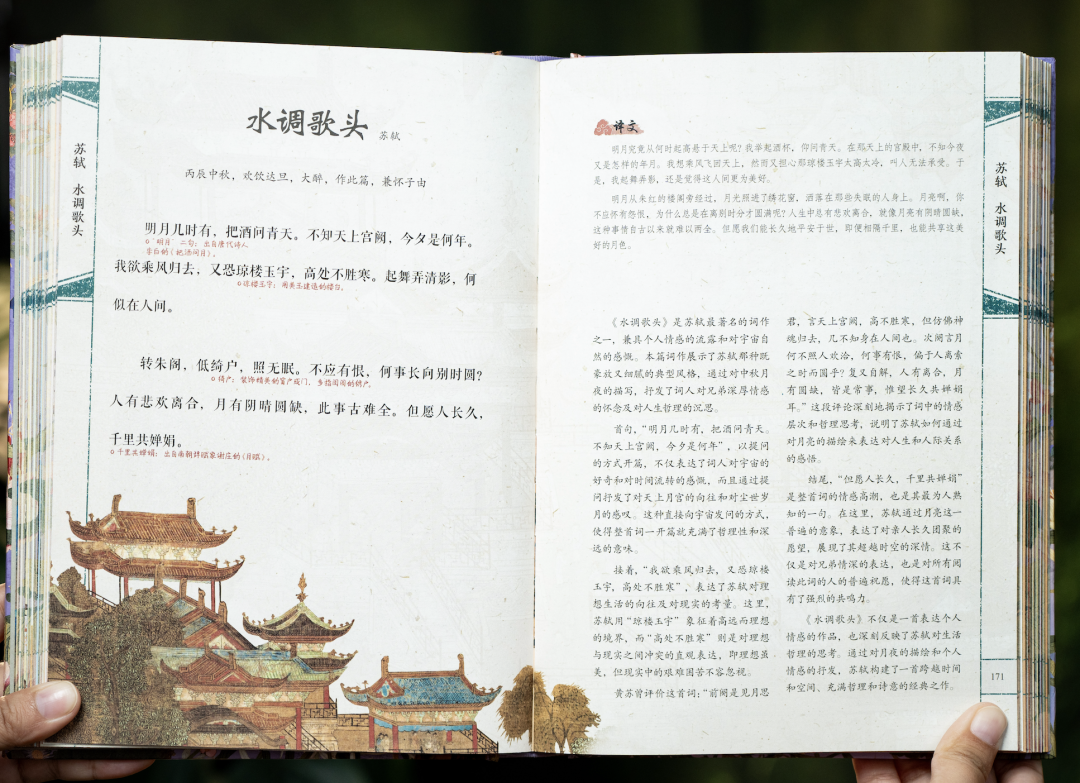 苏轼 水调歌头
水调歌头 苏轼
丙辰中秋，欢饮达旦，大醉，作此篇，兼怀子由
明月几时有，把酒问青天。不知天上宫阙，今夕是何年。
“明月”二句：出自唐代诗人
李白的《把酒问月》。
我欲乘风归去，又恐琼楼玉宇，高处不胜寒。起舞弄清影，何
琼楼玉宇：用美玉建造的楼台。
似在人间。
转朱阁，低绮户，照无眠。不应有恨，何事长向别时圆？
绮户：装饰精美的窗户或门，多指闺阁的绣户。
人有悲欢离合，月有阴晴圆缺，此事古难全。但愿人长久，
千里共婵娟。
千里共婵娟：出自南朝辞赋家谢庄的《月赋》。
译文
明月究竟从何时起高悬于天上呢？我举起酒杯，仰问青天。在那天上的宫殿中，不知今夜
又是怎样的年月。我想乘风飞回天上，然而又担心那琼楼玉宇太高太冷，叫人无法承受。于
是，我起舞弄影，还是觉得这人间更为美好。
明月从朱红的楼阁旁经过，月光照进了绮花窗，洒落在那些失眠的人身上。月亮啊，你
不应怀有怨恨，为什么总是在离别时分才圆满呢？人生中总有悲欢离合，就像月亮有阴晴圆缺，
这种事情自古以来就难以两全。但愿我们能长久地平安于世，即便相隔千里，也能共享这美
好的月色。
《水调歌头》是苏轼最著名的词作
之一，兼具个人情感的流露和对宇宙自
然的感慨。本篇词作展示了苏轼那种既
豪放又细腻的典型风格，通过对中秋月
夜的描写，抒发了词人对兄弟深厚情感
的怀念及对人生哲理的沉思。
首句，“明月几时有，把酒问青天。
不知天上宫阙，今夕是何年”，以提问
的方式开篇，不仅表达了词人对宇宙的
好奇和对时间流转的感慨，而且通过提
问抒发了对天上月宫的向往和对尘世岁
月的感叹。这种直接向宇宙发问的方式，
使得整首词一开篇就充满了哲理性和深
远的意味。
接着，“我欲乘风归去，又恐琼楼
玉宇，高处不胜寒”，表达了苏轼对理
想生活的向往及对现实的考量。这里，
苏轼用“琼楼玉宇”象征着高远而理想
的境界，而“高处不胜寒”则是对理想
与现实之间冲突的直观表达，即理想虽
美，但现实中的艰难困苦不容忽视。
黄苏曾评价这首词：“前阕是见月思
君，言天上宫阙，高不胜寒，但仿佛神
魂归去，几不知身在人间也。次阕言月
何不照人欢洽，何事有恨，偏于人离索
之时而圆乎？复又自解，人有离合，月
有圆缺，皆是常事，惟望长久共婵娟
耳。”这段评论深刻地揭示了词中的情感
层次和哲理思考，说明了苏轼如何通过
对月亮的描绘来表达对人生和人际关系
的感悟。
结尾，“但愿人长久，千里共婵娟”
是整首词的情感高潮，也是其最为人熟
知的一句。在这里，苏轼通过月亮这一
普遍的意象，表达了对亲人长久团聚的
愿望，展现了其超越时空的深情。这不
仅是对兄弟情深的表达，也是对所有阅
读此词的人的普遍祝愿，使得这首词具
有了强烈的共鸣力。
《水调歌头》不仅是一首表达个人
情感的作品，也深刻反映了苏轼对生活
哲理的思考。通过对月夜的描绘和个人
情感的抒发，苏轼构建了一首跨越时间
和空间、充满哲理和诗意的经典之作。
苏轼 水调歌头
171